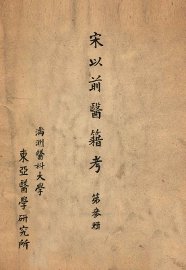 宋以前醫籍考
第參輯
滿洲醫科大學
東亞醫學研究所